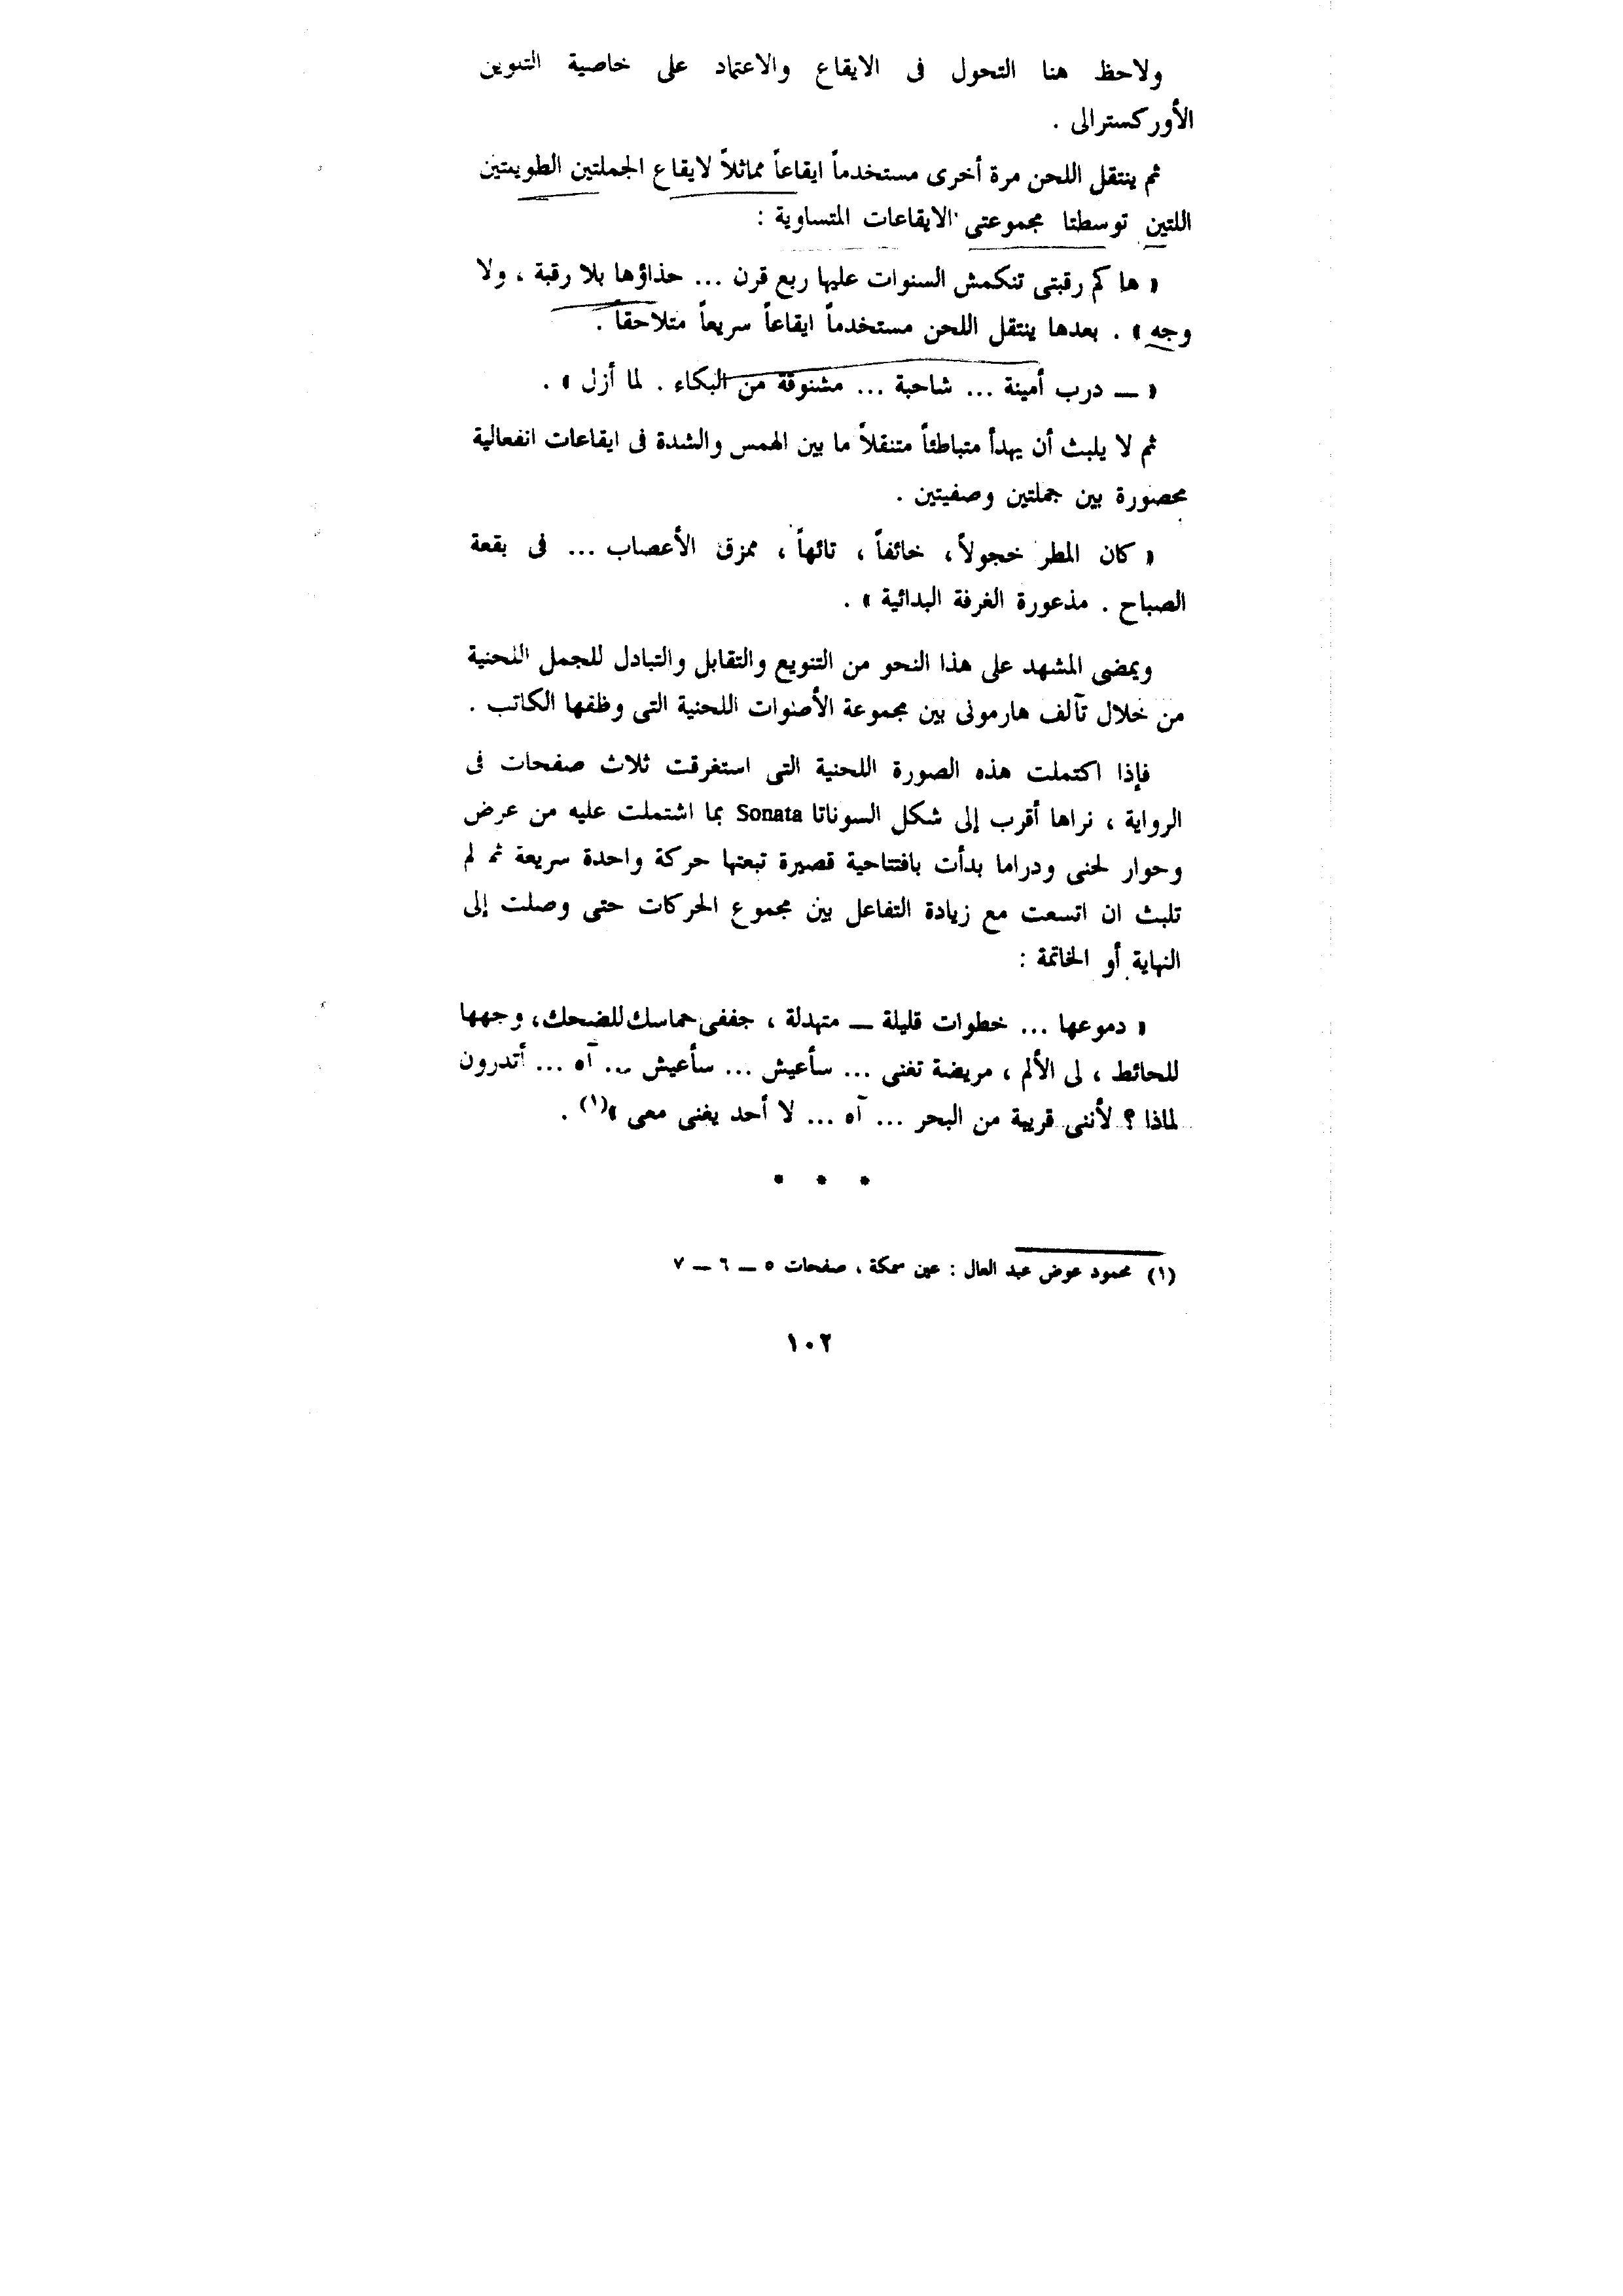 ولاحظ هنا التحول فى الايقاع والاعتماد على خاصية التلوين
الأوركسترالى .
ثم ينتقل اللحن مرة أخرى مستخدماً ايقاعاً مماثلاً لايقاع الجملتين الطويلتين
اللتين توسطتا مجموعتى الايقاعات المتساوية :
« ها كم رقبتى تنكمش السنوات عليها ربع قرن ... حذاؤها بلا رقبة ، ولا
وجه » . بعدها ينتقل اللحن مستخدماً ايقاعاً سريعاً متلاحقاً .
« — درب أمينة ... شاحبة ... مشنوقة من البكاء . لما أزل » .
ثم لا يلبث أن يهدأ متباطئاً متنقلاً ما بين الهمس والشدة فى ايقاعات انفعالية
محصورة بين جملتين وصفيتين .
« كان المطر خجولاً ، خائفاً ، تائهاً ، ممزق الأعصاب ... فى بقعة
الصباح . مذعورة الغرفة البدائية » .
ويمضى المشهد على هذا النحو من التنويع والتقابل والتبادل للجمل اللحنية
من خلال تآلف هارمونى بين مجموعة الأصوات اللحنية التى وظفها الكاتب .
فإذا اكتملت هذه الصورة اللحنية التى استغرقت ثلاث صفحات فى
الرواية ، نراها أقرب إلى شكل السوناتا Sonata بما اشتملت عليه من عرض
وحوار لحنى ودراما بدأت بافتتاحية قصيرة تبعتها حركة واحدة سريعة ثم لم
تلبث ان اتسعت مع زيادة التفاعل بين مجموع الحركات حتى وصلت إلى
النهاية أو الخاتمة :
« دموعها ... خطوات قليلة — متهدلة ، جففى حماسك للضحك، وجهها
للحائط ، لى الألم ، مريضة تغنى ... سأعيش ... سأعيش ... آه ... أتدرون
لماذا ؟ لأننى قريبة من البحر ... آه ... لا أحد يغنى معى »(١) .
* * *
(١) محمود عوض عبد العال : عين سمكة ، صفحات ٥ — ٦ — ٧
١٠٢